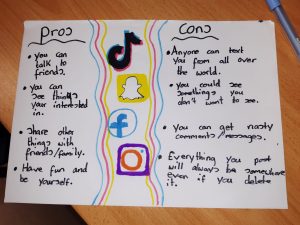 Pros
• you can
talk to
friends.
• you can
see things
your interested
in.
• Share other
things with
friends/family.
• Have fun and
be yourself.
Cons
• Anyone can text
you from all over
the world.
• you could see
somethings you
don't want to see.
• You can get nasty
comments/messages.
• Everything you post
will always be somewhere
even if you delete
it.